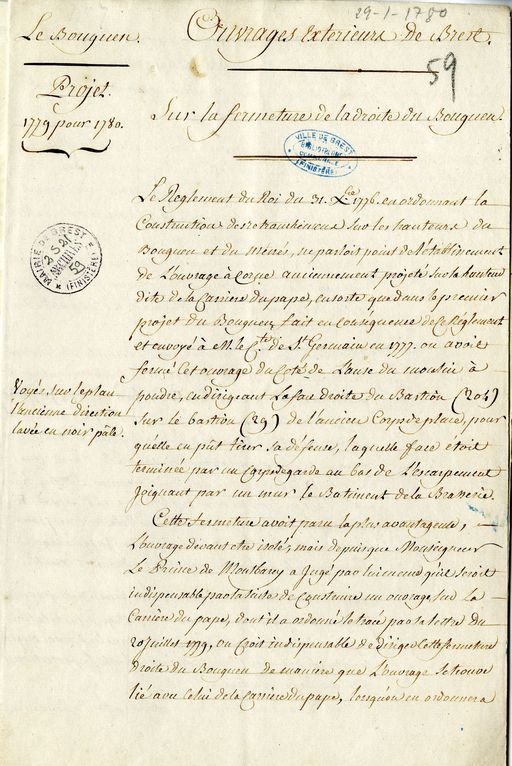 29-1-1780
Le Bouguen.
Ouvrages Exterieurs de Brest.
59
Projet
1779 pour 1780.
Sur la fermeture de la droite du Bouguen.
VILLE DE BREST
BIBLIOTHÈQUE
COMMUNALE
(FINISTÈRE)
Le Reglement du Roi du 31. Xbre 1776. en ordonnant la
Construction des retranchemens sur les hauteurs du
Bouguen et du mesné, ne parloit point de l'établissement
de L'ouvrage à Corne anciennement projeté sur la hauteur
dite de la Carriere du pape, ensorte que dans le premier
projet du Bouguen, fait en conséquence de ce Reglement
et envoyé à M. le Cte. de St. Germain en 1777. on avoit
fermé cet ouvrage du Coté de L'anse du moulin à
poudre, en dirigeant la face droite du Bastion (204)
sur le bastion (29) de l'ancien Corps de place, pour
qu'elle en pût tirer sa défense, laquelle face étoit
terminée par un Corps de garde au bas de L'escarpement
joignant par un mur le Batiment de la Brasserie.
MAIRIE DE BREST
ARCHIVES
(FINISTÈRE)
Voyés, sur le plan
l'ancienne direction
lavée en noir pâle.
Cette fermeture avoit paru la plus avantageuse,
L'ouvrage devant etre isolé; mais depuis que Monseigneur
Le Prince de Montbarey a jugé par lui meme qu'il seroit
indispensable par la suite de Construire un ouvrage sur la
Carriere du pape, dont il a ordonné le tracé par sa lettre du
20 Juillet 1779, on Croit indispensable de diriger Cette fermeture
droite du Bouguen de maniere que L'ouvrage se trouve
lié avec Celui de la Carriere du pape, lorsqu'on en ordonnera